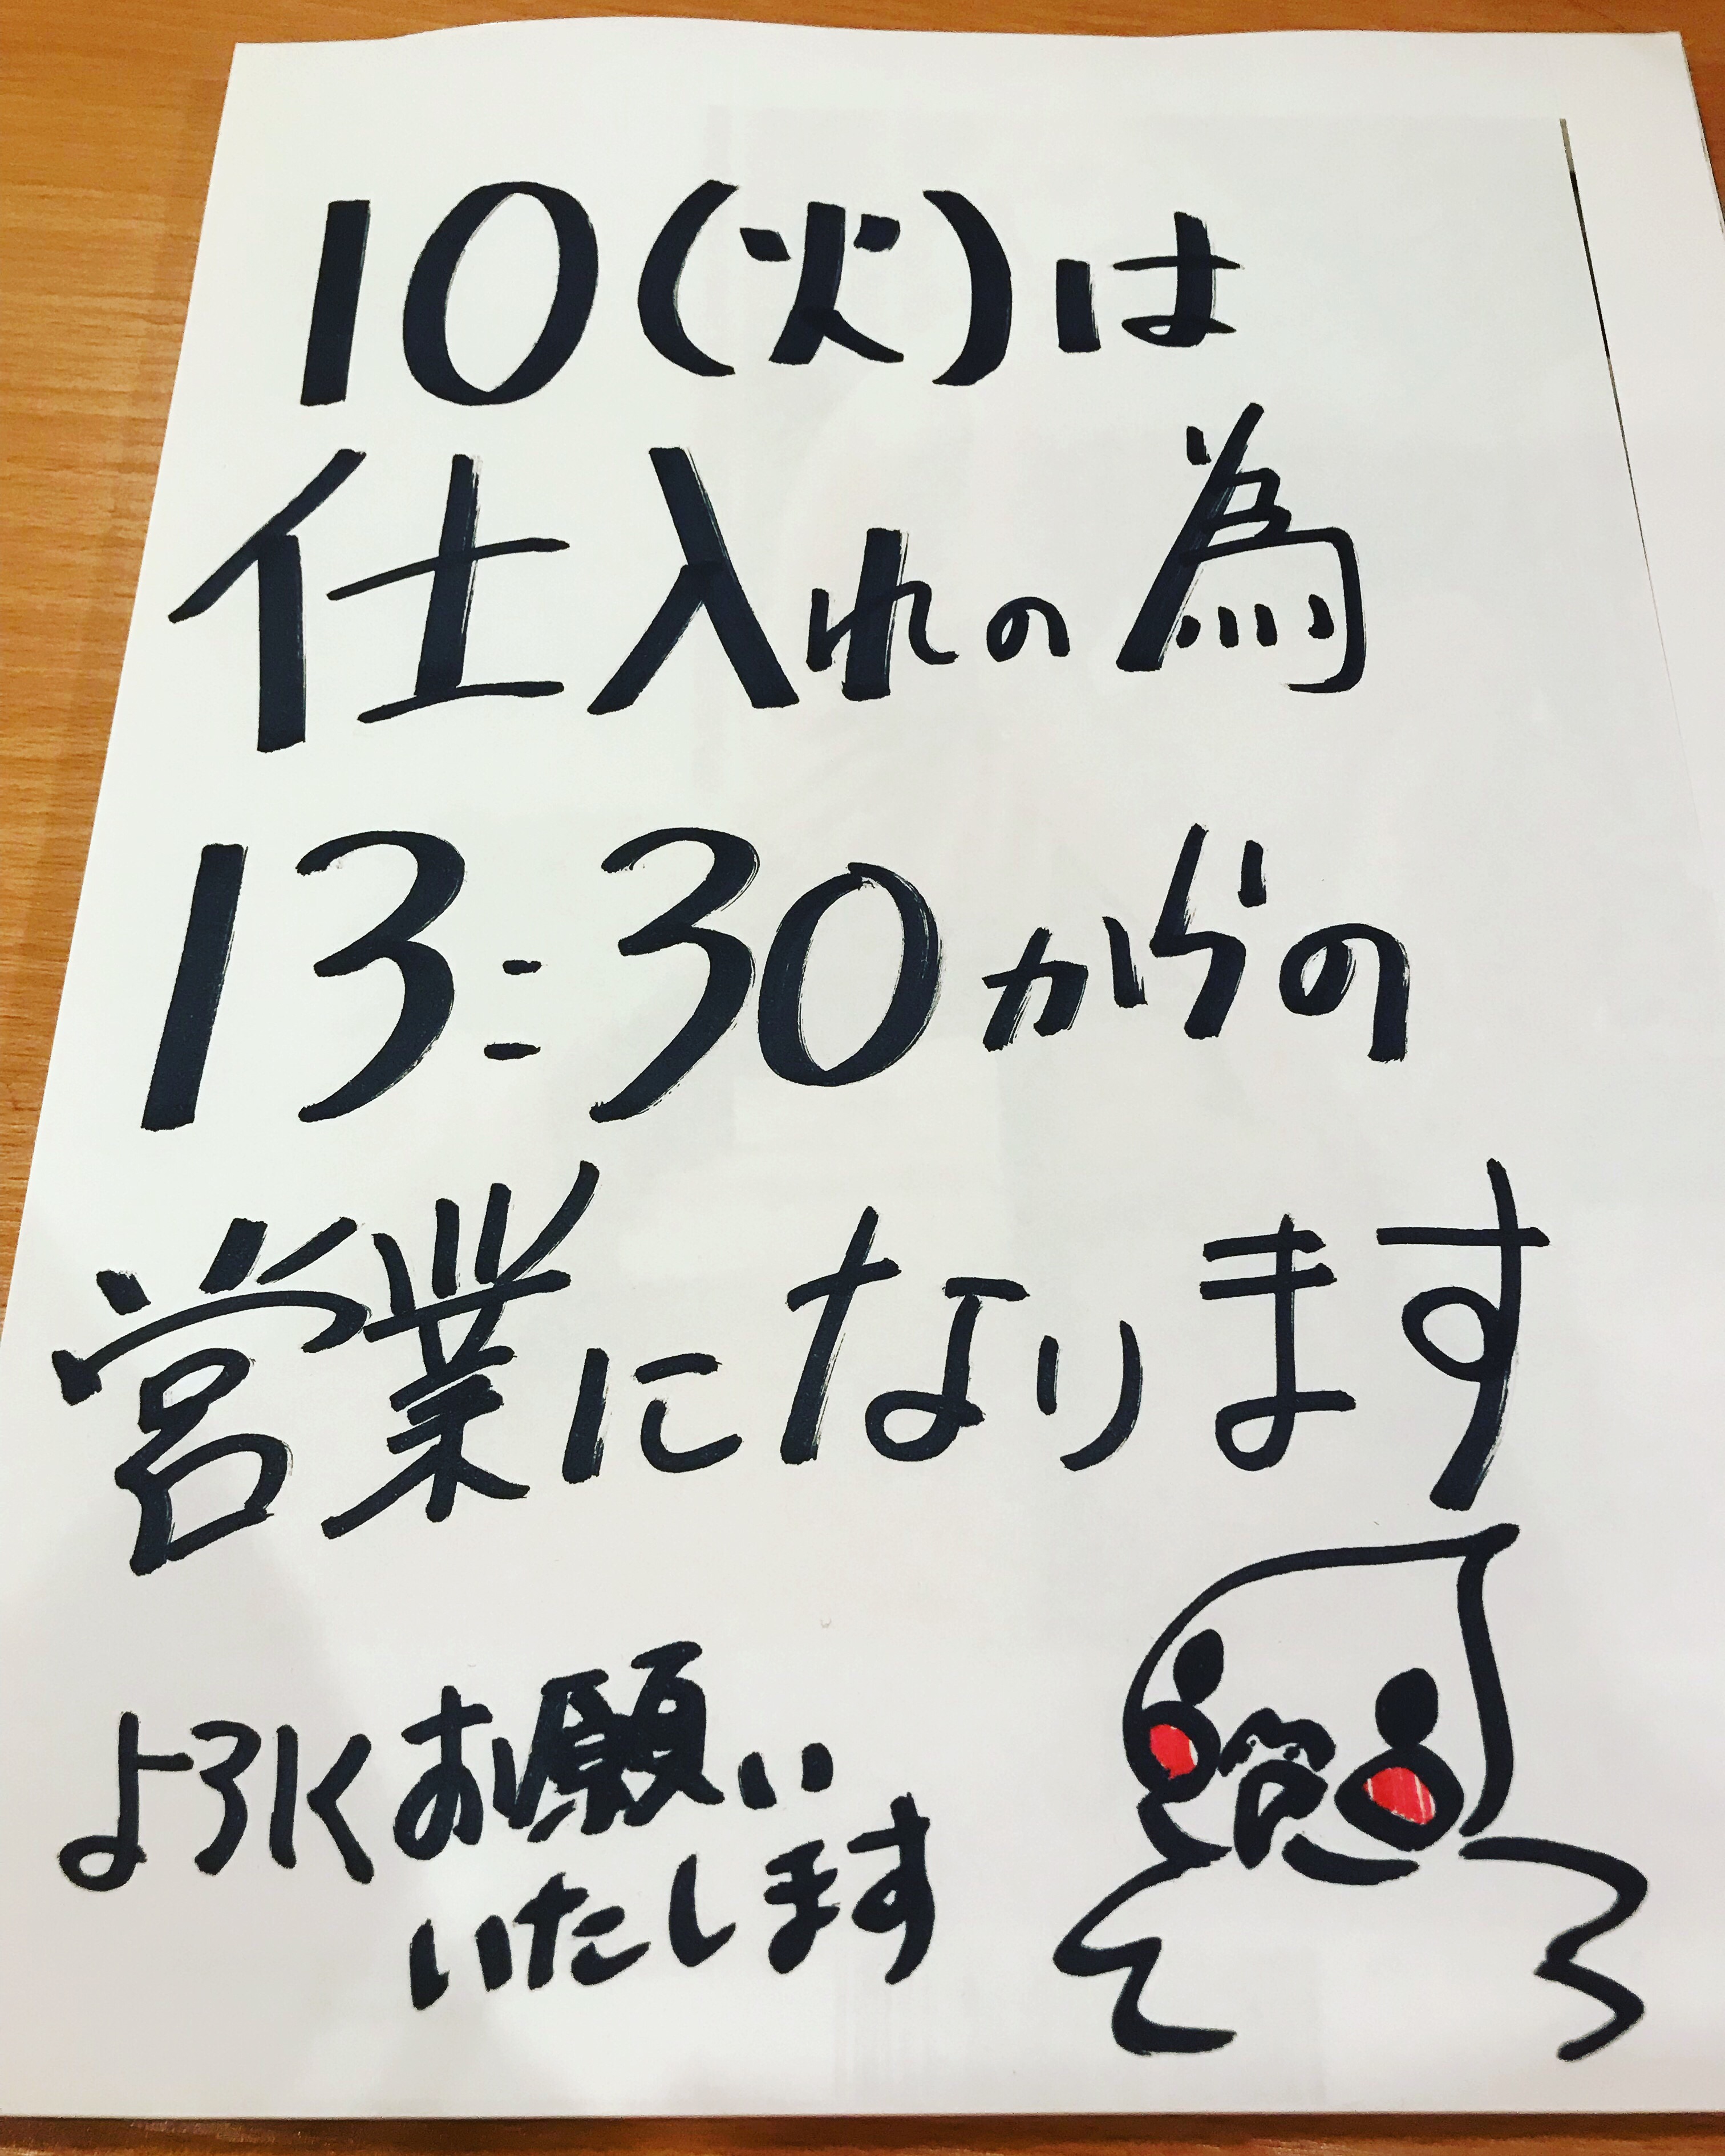 10(火)は
仕入れの為
13:30からの
営業になります
よろしくお願い
いたします